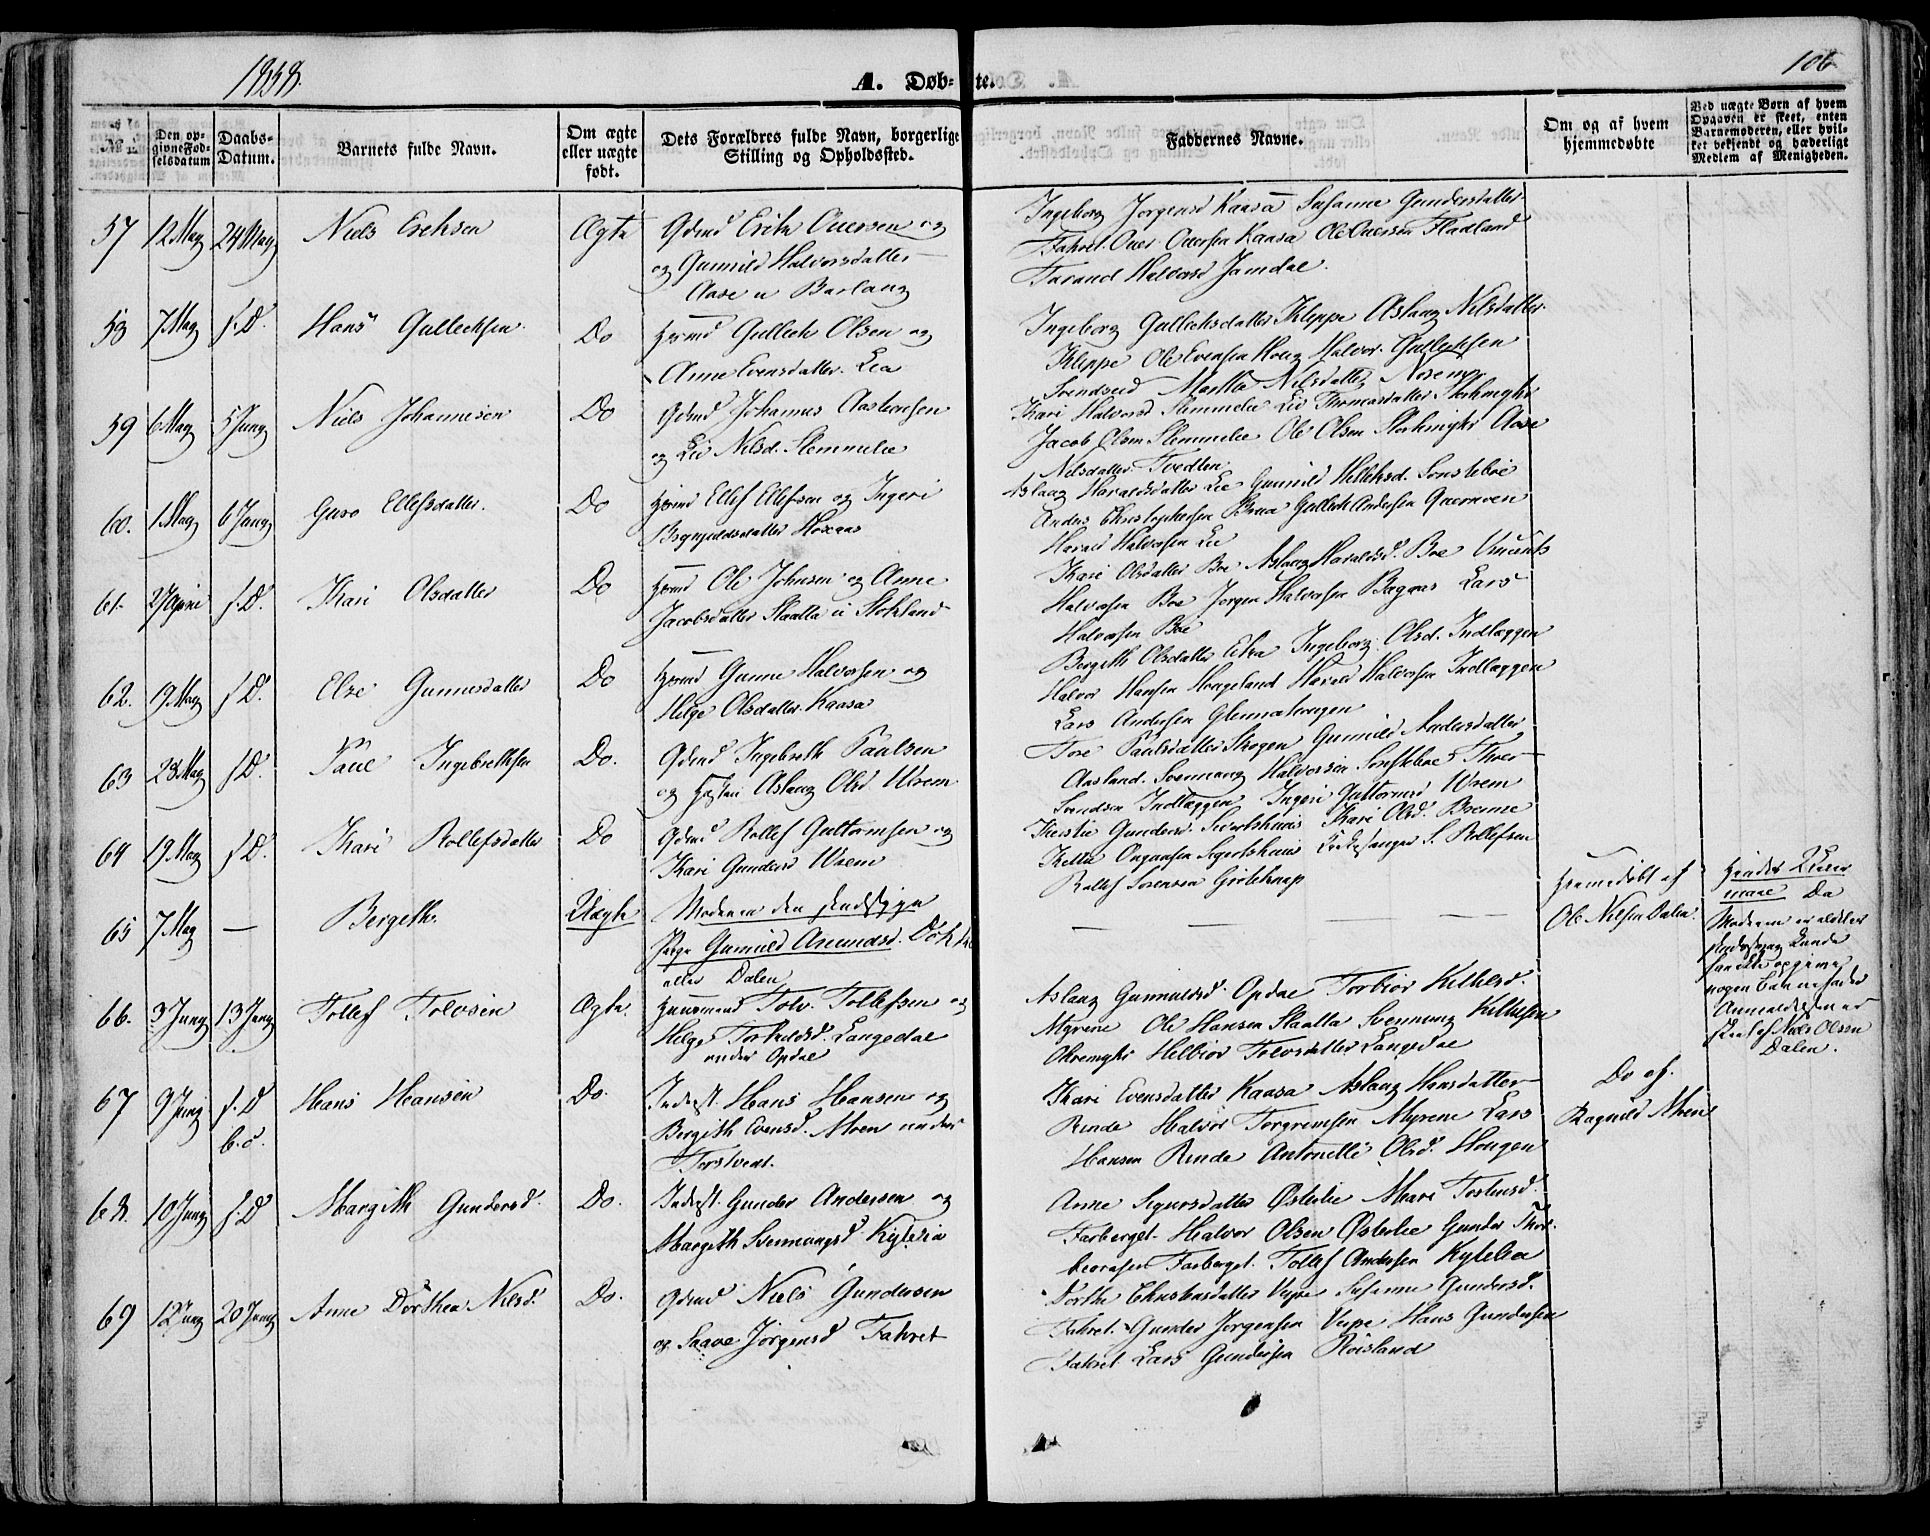 1858.
A. Døb-
te.
106
№
Den op-
givne Fød-
selsdatum
Daabs-
Datum.
Barnets fulde Navn.
Om ægte
eller uægte
født.
Dets Forældres fulde Navn, borgerlige
Stilling og Opholdssted.
Faddernes Navne.
Om og af hvem
hjemmedøbte
Ved uægte Børn af hvem
Opgaven er skeet, enten
Barnemoderen, eller hvil-
ket bekjendt og hæderligt
Medlem af Menigheden.
57 12 May 24 May Niels Erichsen Ægte
Gdmd Erik Oversen og
og Gunnild Halvorsdatter
Aase u Barlaug
Ingeborg Jorgensd Kaasa Susanne Gundersdatter
Fahret. Over Oversen Kaasa Ole Oversen Fladland
Tarand Halvorsd Jamdal.
58 7 May s. D. Hans Gullecksen Do
Gullech Olsen og
Anne Evensdatter Lia
Ingeborg Gullecksdatter Kleppe Aslaug Nilsdatter
Kleppe Ole Evensen Houg Halvor Gullecksen
Svendseid Martha Nilsdatter
59 6 May 5 Juny Niels Johannesen Do
Gdmd Johannes Aastevesen
og Liv Nilsd. Slemmelie
Kari Halvorsd Slemmelie Liv Thomasdatter Stockmyhr
Jacob Olsen Slemmelie Ole Olsen Stockmyhr Aase
Nilsdatter Tvedten
60. 1 May 6 Juny Guro Ellefsdatter. Do
Ellef Ellefsen og Ingeri
Brynjuldsdatter Moxaas
Aslaug Haraldsdatter Lie Gunnild Kittelsd. Sonstebøe
Anders Christophersen Brua Gullech Andersen Qvernven
Harald Halvorsen Lie
61. 27 April s. D. Kari Olsdatter Do
Ole Johnsen og Anne
Jacobsdatter Skaatta u Stokland
Kari Olsdatter Boe Aslaug Haraldsd. Boe
Halvorsen Boe Jorgen Halvorsen Bagaas Lars
Halvorsen Boe
62. 19 May s. D. Else Gunnesdatter Do
Gunne Halvorsen og
Helge Olsdatter Kaasa
Bergith Olsdatter Eika Ingeborg Olsd. Indlæggen
Halvor Hansen Hougeland Harald Halvorsen Indlæggen
Lars Andersen
63 23 May s. D. Paul Ingebrethsen Do.
Gdmd Ingebreth Paulsen
og Hustru Aslaug Olsd Wrem
Tore Paulsdatter Skogen Gunnild Andersdatter
Aasland. Svennung Halvorsen Sonstebøe Thor
Svendsen Indlæggen Ingeri Guttormsd Wrem
64 19 May s. D. Kari Rollefsdatter Do
Gdmd Rollef Guttormsen og
Kari Gundersd Wrem
Kirstie Gundersd. Sivertshuus Kari Olsd. Brenne
Kittil Sigertshuus Kirkesanger S. Rollefsen
Rollef Sorensen Griteknap
65 7 May — Bergith. Uægte
Moderen den sindssyge
Pige Gunnild Amundsd.
eller Dalen
Hjemmedøbt af
Ole Nilsen Dalen.
Da
Moderen er aldeles
sindssyg kunde
opgives
nogen Barnefader
Anmeldelsen er
skeet af Niels Olsen
Dalen.
66. 3 Juny 13 Juny Tollef Tolvsen Ægte.
Huusmand Tolv. Tollefsen og
Helge Torkildsd. Langedal
under Opdal
Aslaug Gunnuldsd. Opdal Torbior Kittelsd.
Myrene Ole Hansen Skaatta Svennung Kittelsen
Okremyhr Helbior Tolvsdatter Langedal
67 9 Juny s. D b. c. Hans Hansen Do.
Inderst. Hans Hansen og
Bergith Evensd. Moen under
Torstvedt.
Kari Evensdatter Kaasa Aslaug Hansdatter
Rinde Halvor Torgrimsen Myrene Lars
Hansen Rinde Antonette Olsd. Hougen
Do af.
Ragnild Moen
68. 10 Juny s. D Margith Gundersd. Do.
Inderst. Gunder Andersen og
Margith Svennungsd Kytelia
Anne Sigursdatter Østerlie Mari Tostensd.
Farberget. Halvor Olsen Østerlie Gunder Thor-
beornsen Farberget. Tollef Andersen Kytelia
69 12 Juny 20 Juny Anne Dorthea Nilsd. Do.
Gdmd Niels Gundersen
og Saave Jørgensd Fahret
Dorthe Christensdatter Vepe Susanne Gundersd.
Fahret. Gunder Jorgensen Vepe Hans Gundersen
Fahret Lars Gundersen Roisland